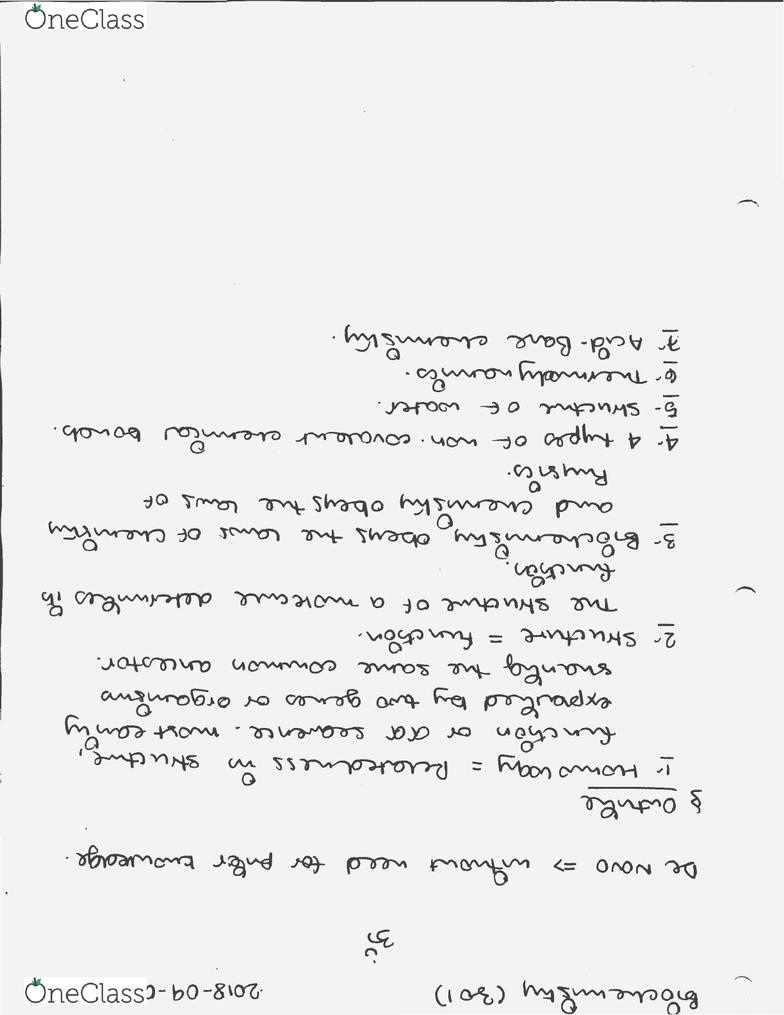 OneClass
Biochemistry (301)
2018-09-
OneClass
De Novo => without need for prior knowledge.
§ Outline
1- Homology = Relatedness in structure,
function or aa sequence. most easily
explained by two genes or organisms
sharing the same common ancestor.
2- Structure = function.
The structure of a molecule determines its
function.
3- Biochemistry obeys the laws of chemistry
and chemistry obeys the laws of
Physics.
4- 4 types of non-covalent chemical bonds.
5- Structure of water.
6- Thermodynamics.
7- Acid-Base chemistry.